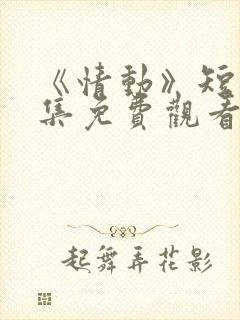 《情動》短
集免費觀看
起舞弄花影